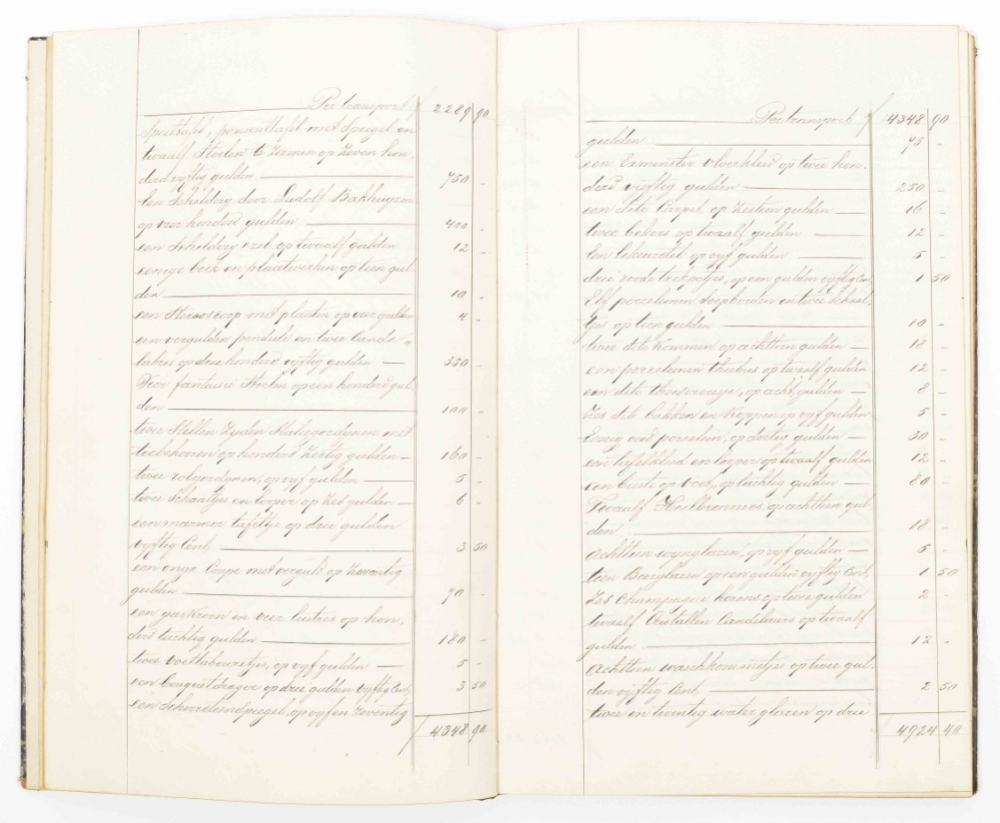 Per transport f 2289 90
Speeltafel, penanttafel met Spiegel en
twaalf Stoelen te zamen op Zeven hon-
derd vyftig gulden 750 -
Een Schildery door Ludolf Bakhuyzen
op vier honderd gulden 400 -
een Schildery ezel op twaalf gulden 12 -
eenige boek en plaatwerken op tien gul-
den 10 -
een Stereoscoop met platen op vier gulden 4 -
een vergulden pendule en twee Cande-
labers op drie honderd vyftig gulden 350 -
Vier fantaisie Stoelen op een honderd gul-
den 100 -
twee Stellen Zyden Matgordynen met
toebehooren op honderd Zestig gulden 160 -
twee rolgordynen, op vyf gulden 5 -
twee Schaaltjes en looper op Zes gulden 6 -
een marmer tafeltje op drie gulden
vyftig Cent 3 50
een onyx Coupe met verguld op Zeventig
gulden 70 -
een gaskroon en vier lustres op hon-
derd tachtig gulden 180 -
twee voettabouretjes, op vyf gulden 5 -
een bouquetdrager op drie gulden vyftig Cent, 3 50
een Schoorsteenspiegel, op vyf en Zeventig
f 4348 90
Per transport f 4348 90
gulden 75 -
een Axminster vloerkleed op twee hon-
derd vyftig gulden 250 -
een dito Carpet op Zestien gulden 16 -
twee bekers op twaalf gulden 12 -
Een likeurstel op vyf gulden 5 -
drie roode trekpotjes, op een gulden vyftig Cent 1 50
Elf porceleinen soepborden en twee schaal-
tjes op tien gulden 10 -
twee dito Kommen op achttien gulden 18 -
een porceleinen theebus op twaalf gulden 12 -
een dito theeserviesje, op acht gulden 8 -
Zes dito bakken en Koppen op vyf gulden 5 -
Eenig oud porcelein, op dertig gulden 30 -
een tafelkleed en looper op twaalf gulden 12 -
een buste op voet, op tachtig gulden 80 -
Twaalf Heilbronners op achttien gul-
den 18 -
Achttien wynglazen, op vyf gulden 5 -
tien Bierglazen op een gulden vyftig Cent, 1 50
Zes Champagne kelken op twee gulden 2 -
twaalf Cristallen Candelaars op twaalf
gulden 12 -
Achttien waschkommetjes op twee gul-
den vyftig Cent, 2 50
twee en twintig water glazen op drie
f 4924 40